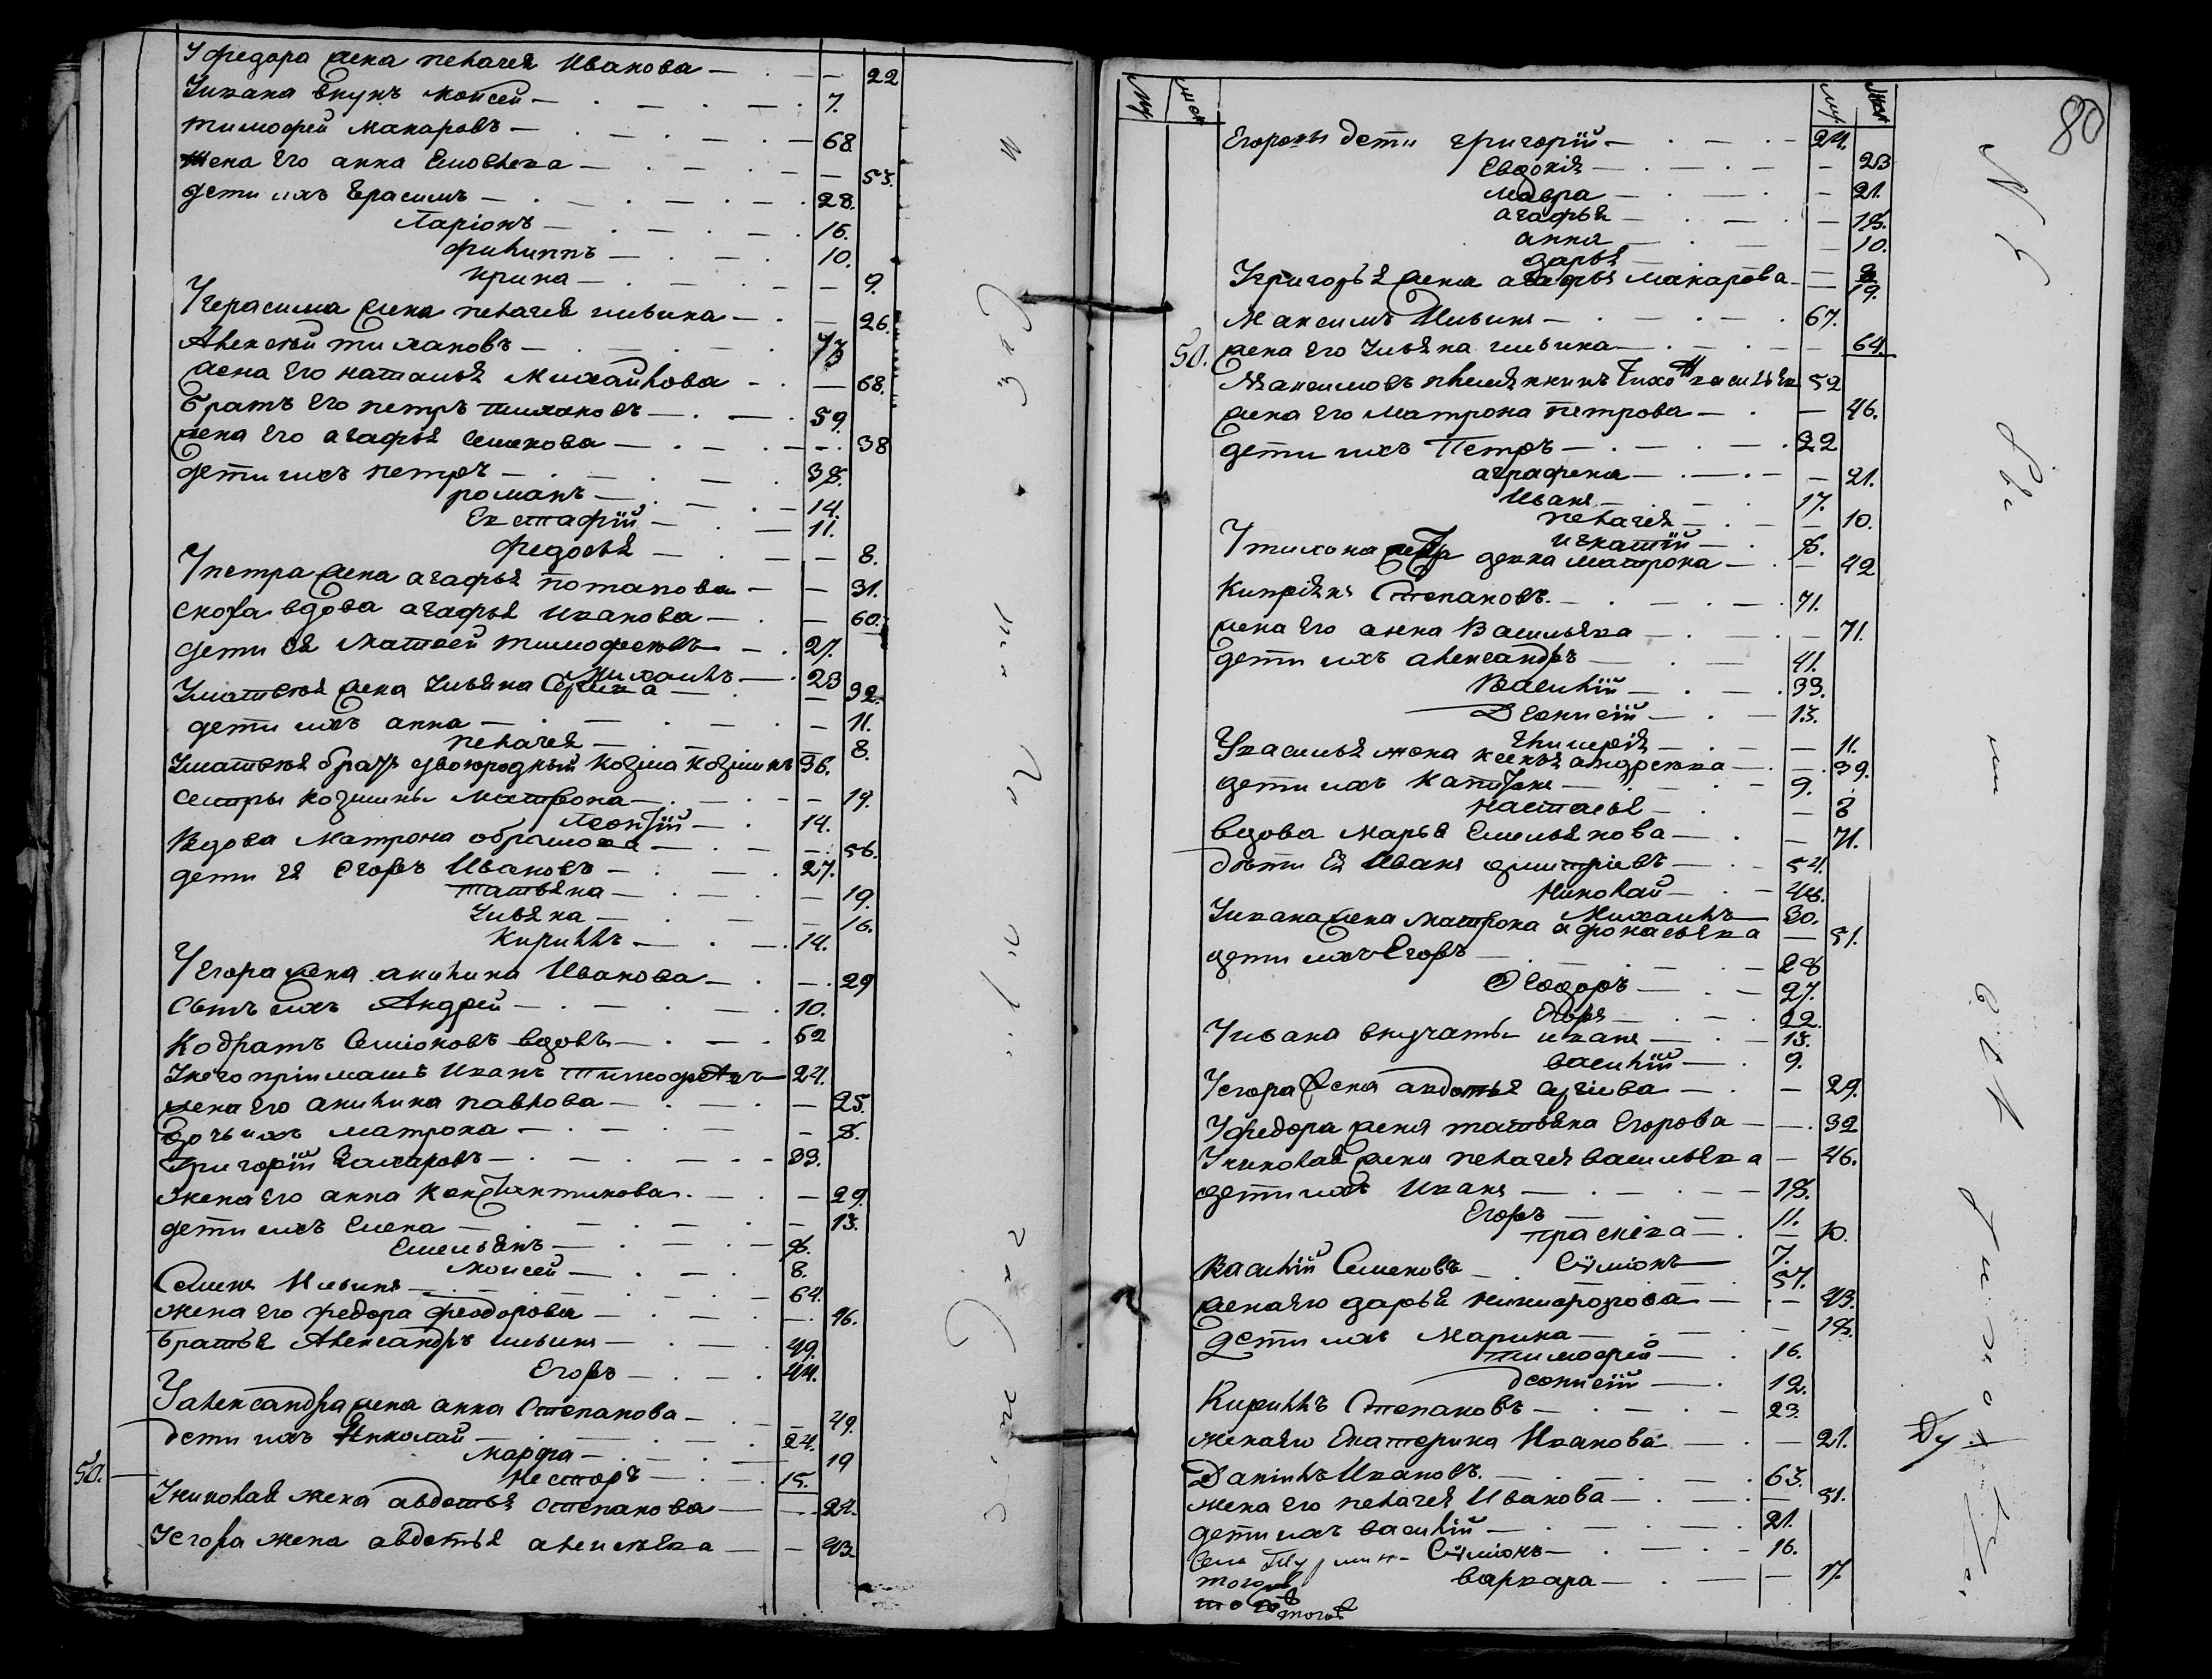 У федора жена пелагея Иванова — 22
У ивана внукъ Моисей — 7.
тимофей Макаровъ — 68.
жена его анна Емовлева — 53.
дети ихъ Герасимъ — 28.
Ларіонъ — 16.
филиппъ — 10.
ирина — 9.
У герасима жена пелагея ильина — 26.
Алексей тихановъ — 73
жена его наталья Михайлова — 68.
братъ его петръ тихановъ — 59.
жена его агафья семенова — 38
дети ихъ петръ — 38.
романъ — 14.
Евстафій — 11.
федосья — 8.
У петра жена агафья потапова — 31.
сноха вдова агафья иванова — 60.
дети ея матвей тимофеевъ — 27.
михаилъ — 23
У матвея жена ульяна — 32.
дети ихъ анна — 11.
пелагея — 8.
У матвея братъ двоюродный козма козминъ 36.
сестры козмины матрона — 19.
леонтій — 14.
Вдова Матрона обрамова — 56.
дети ея егоръ Ивановъ — 27.
татьяна — 19.
ульяна — 16.
Кириллъ — 14.
У Егора жена акилина Иванова — 29
сынъ ихъ Андрей — 10.
Кодратъ Семіоновъ вдовъ — 62
У него пріимашъ Иванъ тимофеевъ 24.
жена его акилина павлова — 25.
дочь ихъ матрона — 8.
Григорій Захаровъ — 33.
жена его анна Константинова — 29.
дети ихъ Елена — 13.
Емельянъ —
моисей — 8.
Семенъ Ильинъ — 64.
жена его федора феодорова — 46.
братья Александръ ильинъ — 49.
Егоръ — 44.
У александра жена анна Степанова — 49.
дети ихъ Николай — 24.
марфа — 19
Несторъ — 15.
50.
У николая жена авдотья степанова — 24.
У егора жена авдотья алексеева — 43
80
Егоровы дети григорій — 24.
Евдокія — 23
мавра — 21.
агафья — 18.
анна — 10.
дарья — 9
У григорья жена агафья макарова — 19.
Максимъ Ильинъ — 67.
50. жена его ульяна ильина — 64.
Максимовъ племянникъ Тихонъ васильевъ 52
жена его Матрона петрова — 46.
дети ихъ Петръ — 22
аграфена — 21.
Иванъ — 17.
пелагея — 10.
игнатій — 8.
У тихона сестра девка матрона — 42
Кипріянъ Степановъ — 71.
жена его анна Васильева — 71.
дети ихъ александръ — 41.
Василій — 33.
Деонисій — 13.
гликерія — 11.
У василья жена ксенья андреева — 39.
дети ихъ капитонъ — 9.
настасья — 8
вдова марья Емельянова — 71.
дети ея Иванъ дмитріевъ — 54.
Николай — 48.
Михаилъ — 30.
У ивана жена матрона афонасьева — 51.
дети ихъ Егоръ — 28
Феодоръ — 27.
— 22.
У ивана внучаты иванъ — 13.
василій — 9.
У егора жена авдотья сергіева — 29.
У федора жена татьяна Егорова — 32
У николая жена пелагея васильева — 46.
дети ихъ Иванъ — 18.
Егоръ — 11.
прасковья — 10.
Сѵміонъ — 7.
Василій Семеновъ — 57.
жена его дарья никифорова — 43.
дети ихъ Марина — 18.
тимофей — 16.
деонисій — 12.
Кириллъ Степановъ — 23.
жена его Екатерина Иванова — 21.
Даніилъ Ивановъ — 63.
жена его пелагея Иванова — 51.
дети ихъ василій — 21.
Сѵміонъ — 16.
варвара — 17.